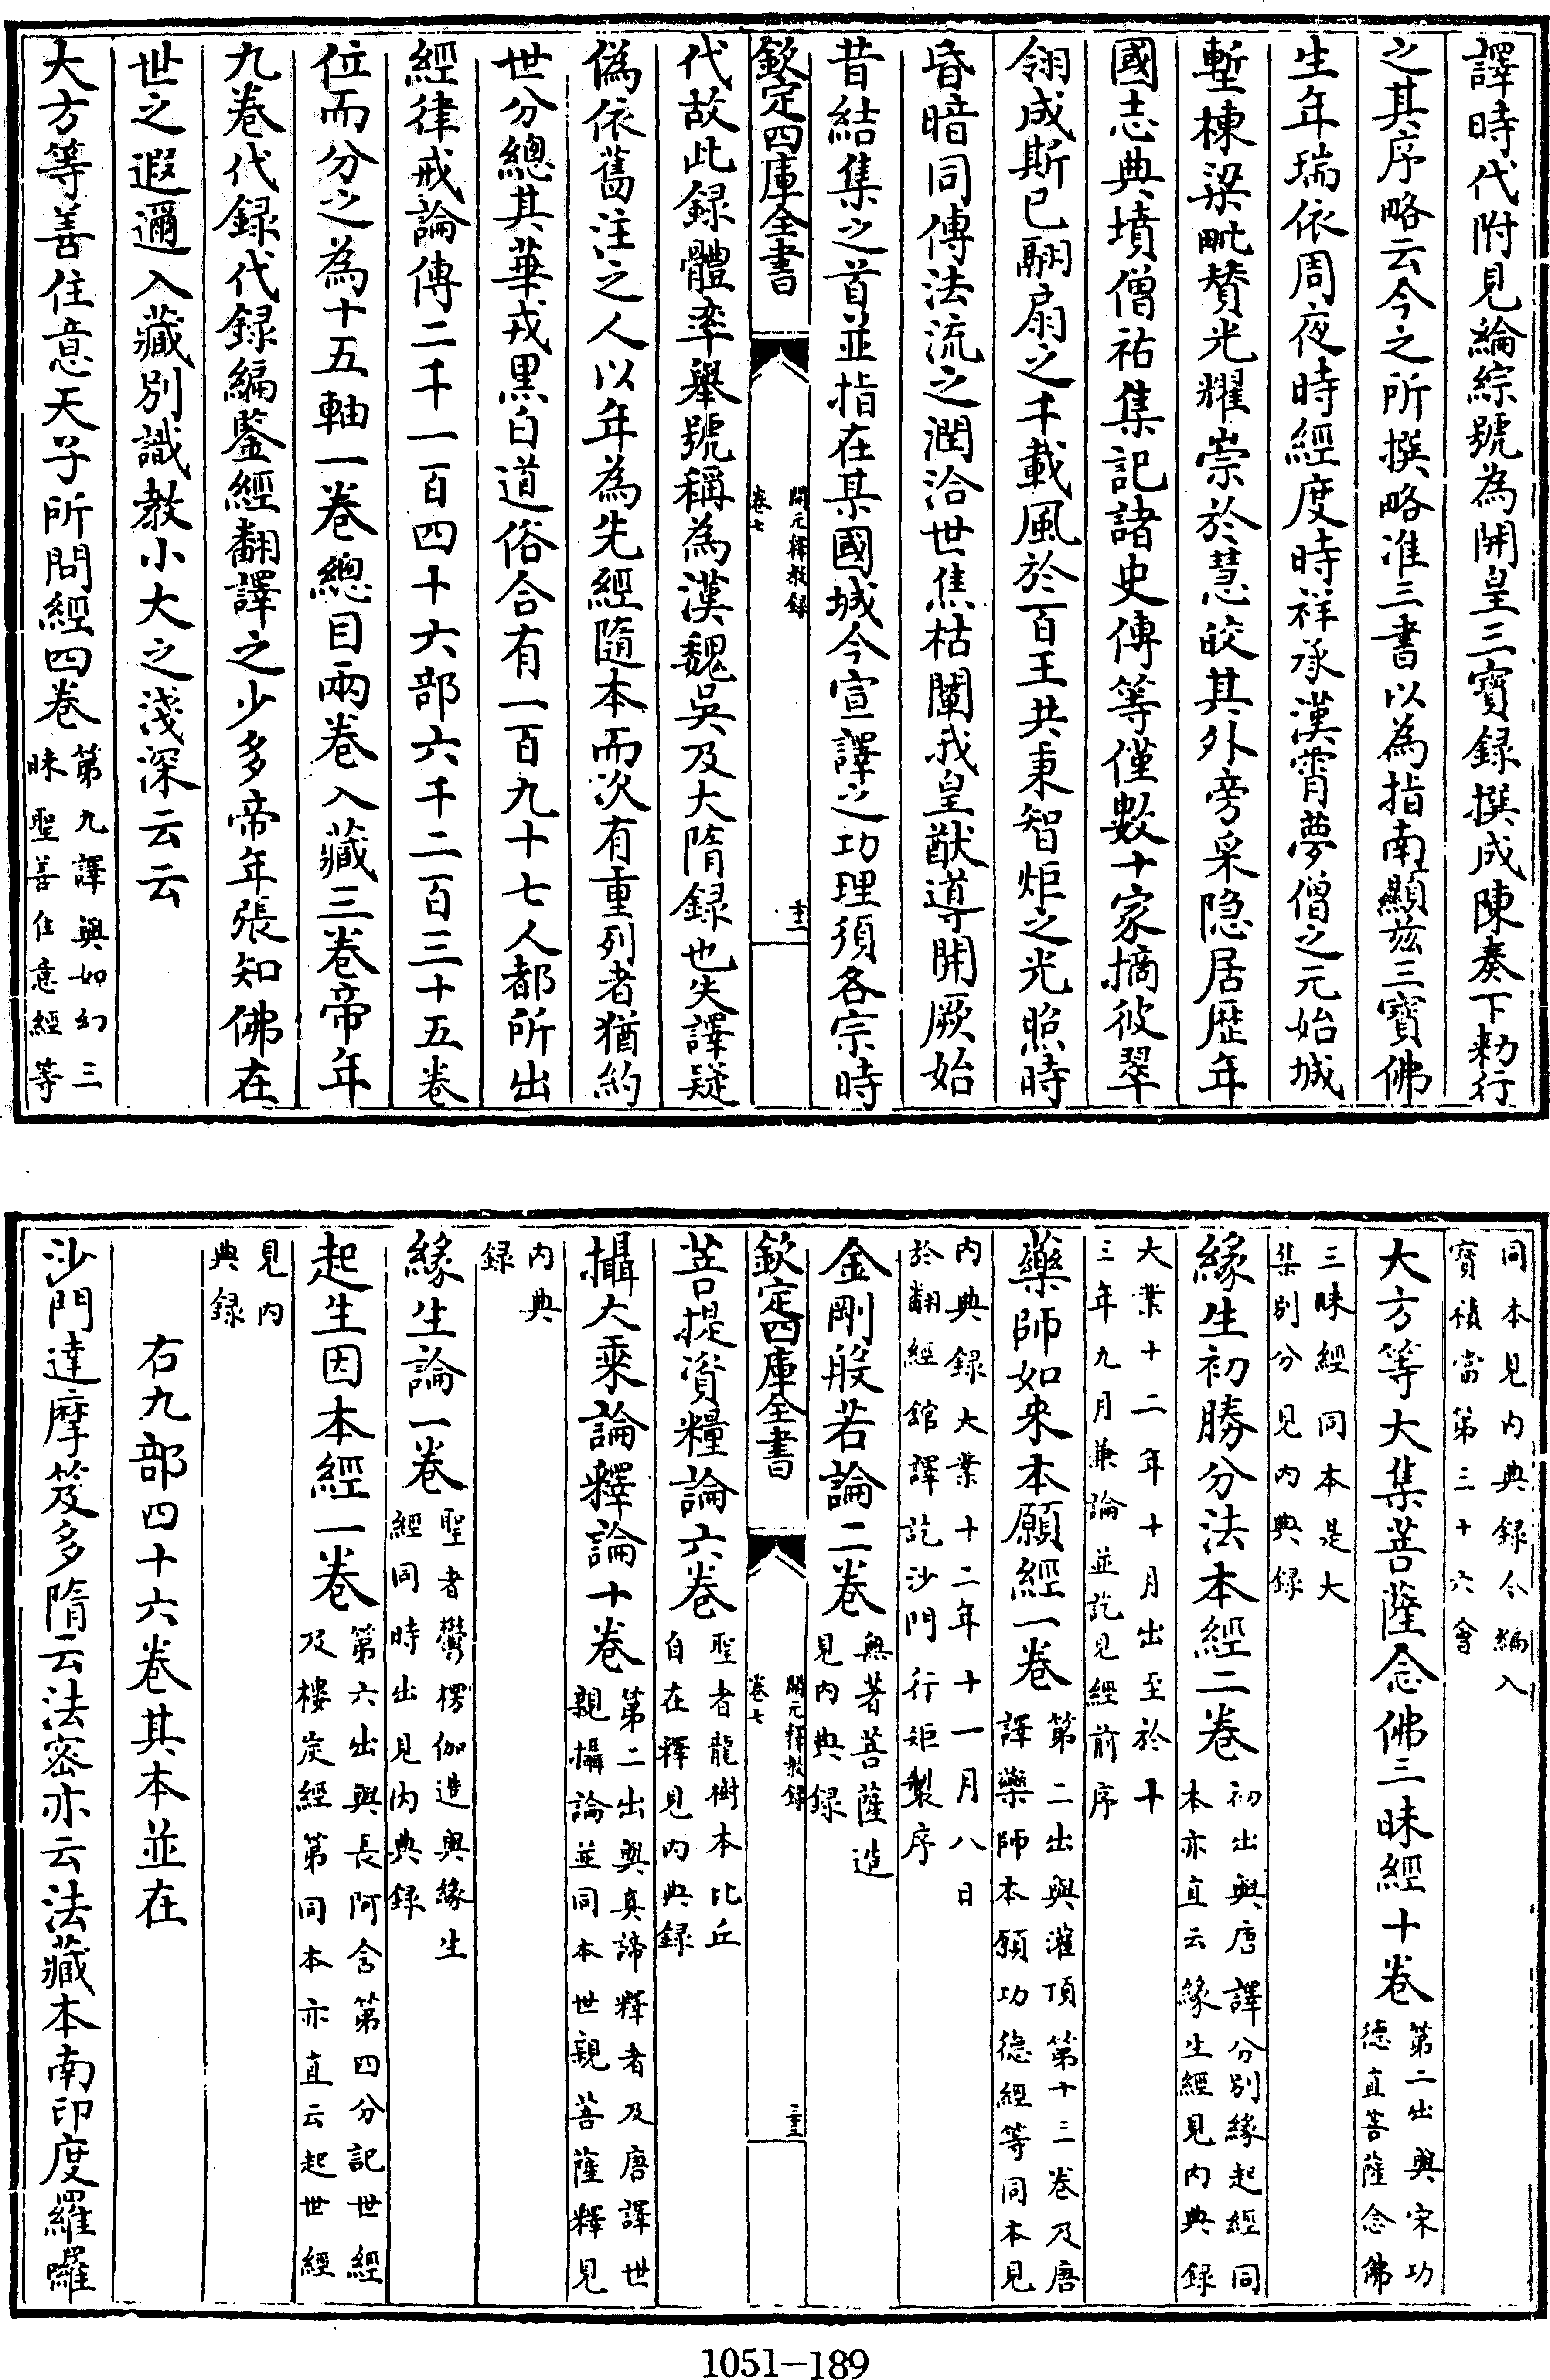 譯時代附見綸綜號為開皇三寳録撰成陳奏下勅行
之其序略云今之所撰略准三書以為指南顯兹三寳佛
生年瑞依周夜時經度時祥承漢霄夢僧之元始城
塹棟梁毗賛光耀崇於慧皎其外旁采隐居歴年
國志典墳僧祐集記諸史傳等僅數十家摘彼翠
翎成斯已翮扇之千載風於百王共秉智炬之光照時
昏暗同傳法流之潤洽世焦枯闡我皇猷導開厥始
昔結集之首並指在某國城今宣譯之功理須各宗時
欽定四庫全書
開元釋教録
卷七
十二
代故此録體率舉號稱為漢魏吳及大隋録也失譯疑
偽依舊注之人以年為先經隨本而次有重列者猶約
世分總其華戎黒白道俗合有一百九十七人都所出
經律戒論傳二千一百四十六部六千二百三十五卷
位而分之為十五軸一卷總目兩卷入藏三卷帝年
九卷代録代録編鑒經翻譯之少多帝年張知佛在
世之遐邇入藏別識教小大之淺深云云
大方等善住意天子所問經四卷
第九譯與如幻三
昧聖善住意經等
同本見内典録今編入
寶積當第三十六會
大方等大集菩薩念佛三昧經十卷
第二出與宋功
徳直菩薩念佛
三昧經同本是大
集別分見内典録
緣生初勝分法本經二卷
初出與唐譯分別緣起經同
本亦直云緣生經見内典録
大業十二年十月出至於十
三年九月兼論並訖見經前序
藥師如來本願經一卷
第二出與灌頂第十二卷及唐
譯藥師本願功徳經等同本見
内典録大業十二年十一月八日
於翻經館譯訖沙門行矩製序
金剛般若論二卷
無著菩薩造
見内典録
欽定四庫全書
開元釋教録
卷七
二十三
菩提資糧論六卷
聖者龍樹本比丘
自在釋見内典録
攝大乘論釋論十卷
第二出與真諦釋者及唐譯世
親攝論並同本世親菩薩釋見
内典
録
緣生論一卷
聖者鬱楞伽造與緣生
經同時出見内典録
起生因本經一卷
第六出與長阿含第四分記世經
及樓炭經第同本亦直云起世經
見内
典録
右九部四十六卷其本並在
沙門達摩笈多隋云法密亦云法藏本南印度羅囉
1051—189